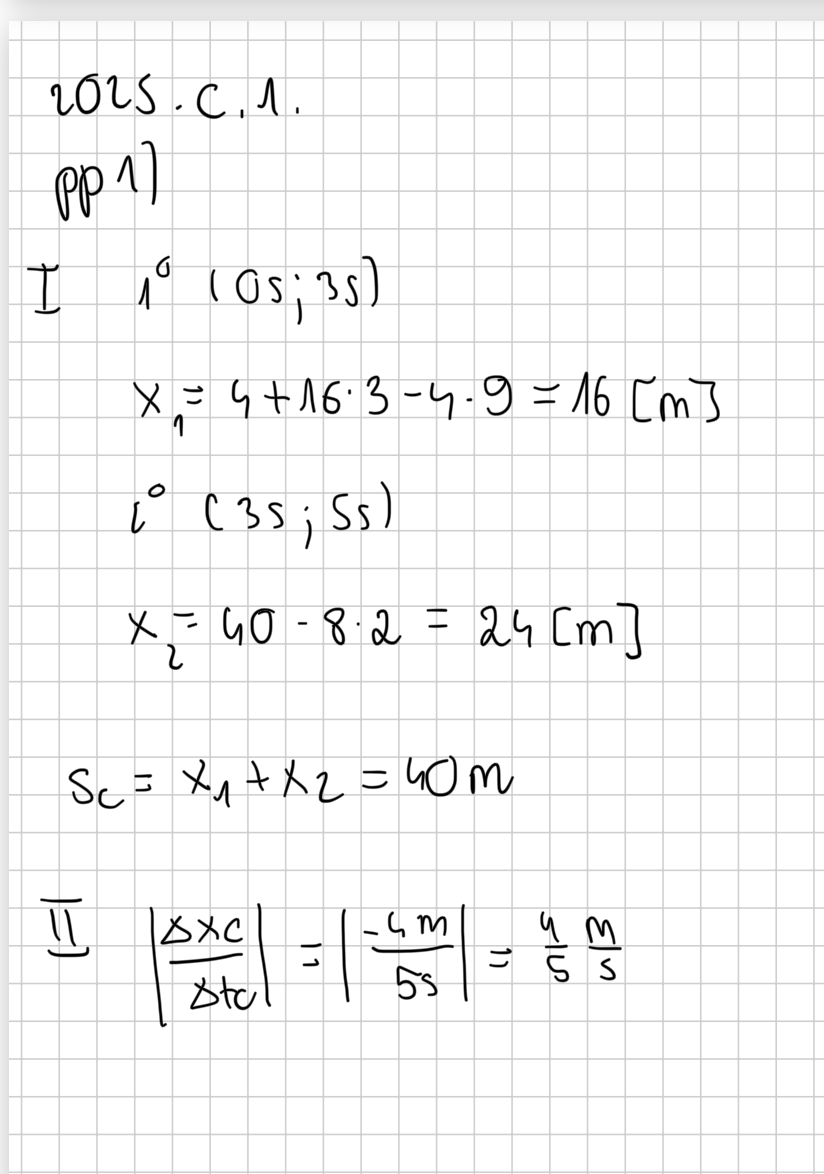 2025.C.1.
pp1)
I 1° (0s; 3s)
x₁ = 4 + 16·3 - 4·9 = 16 [m]
2° (3s; 5s)
x₂ = 40 - 8·2 = 24 [m]
Sc = x₁ + x₂ = 40 m
II |Δxc/Δtc| = |-4 m/5s| = 4/5 m/s